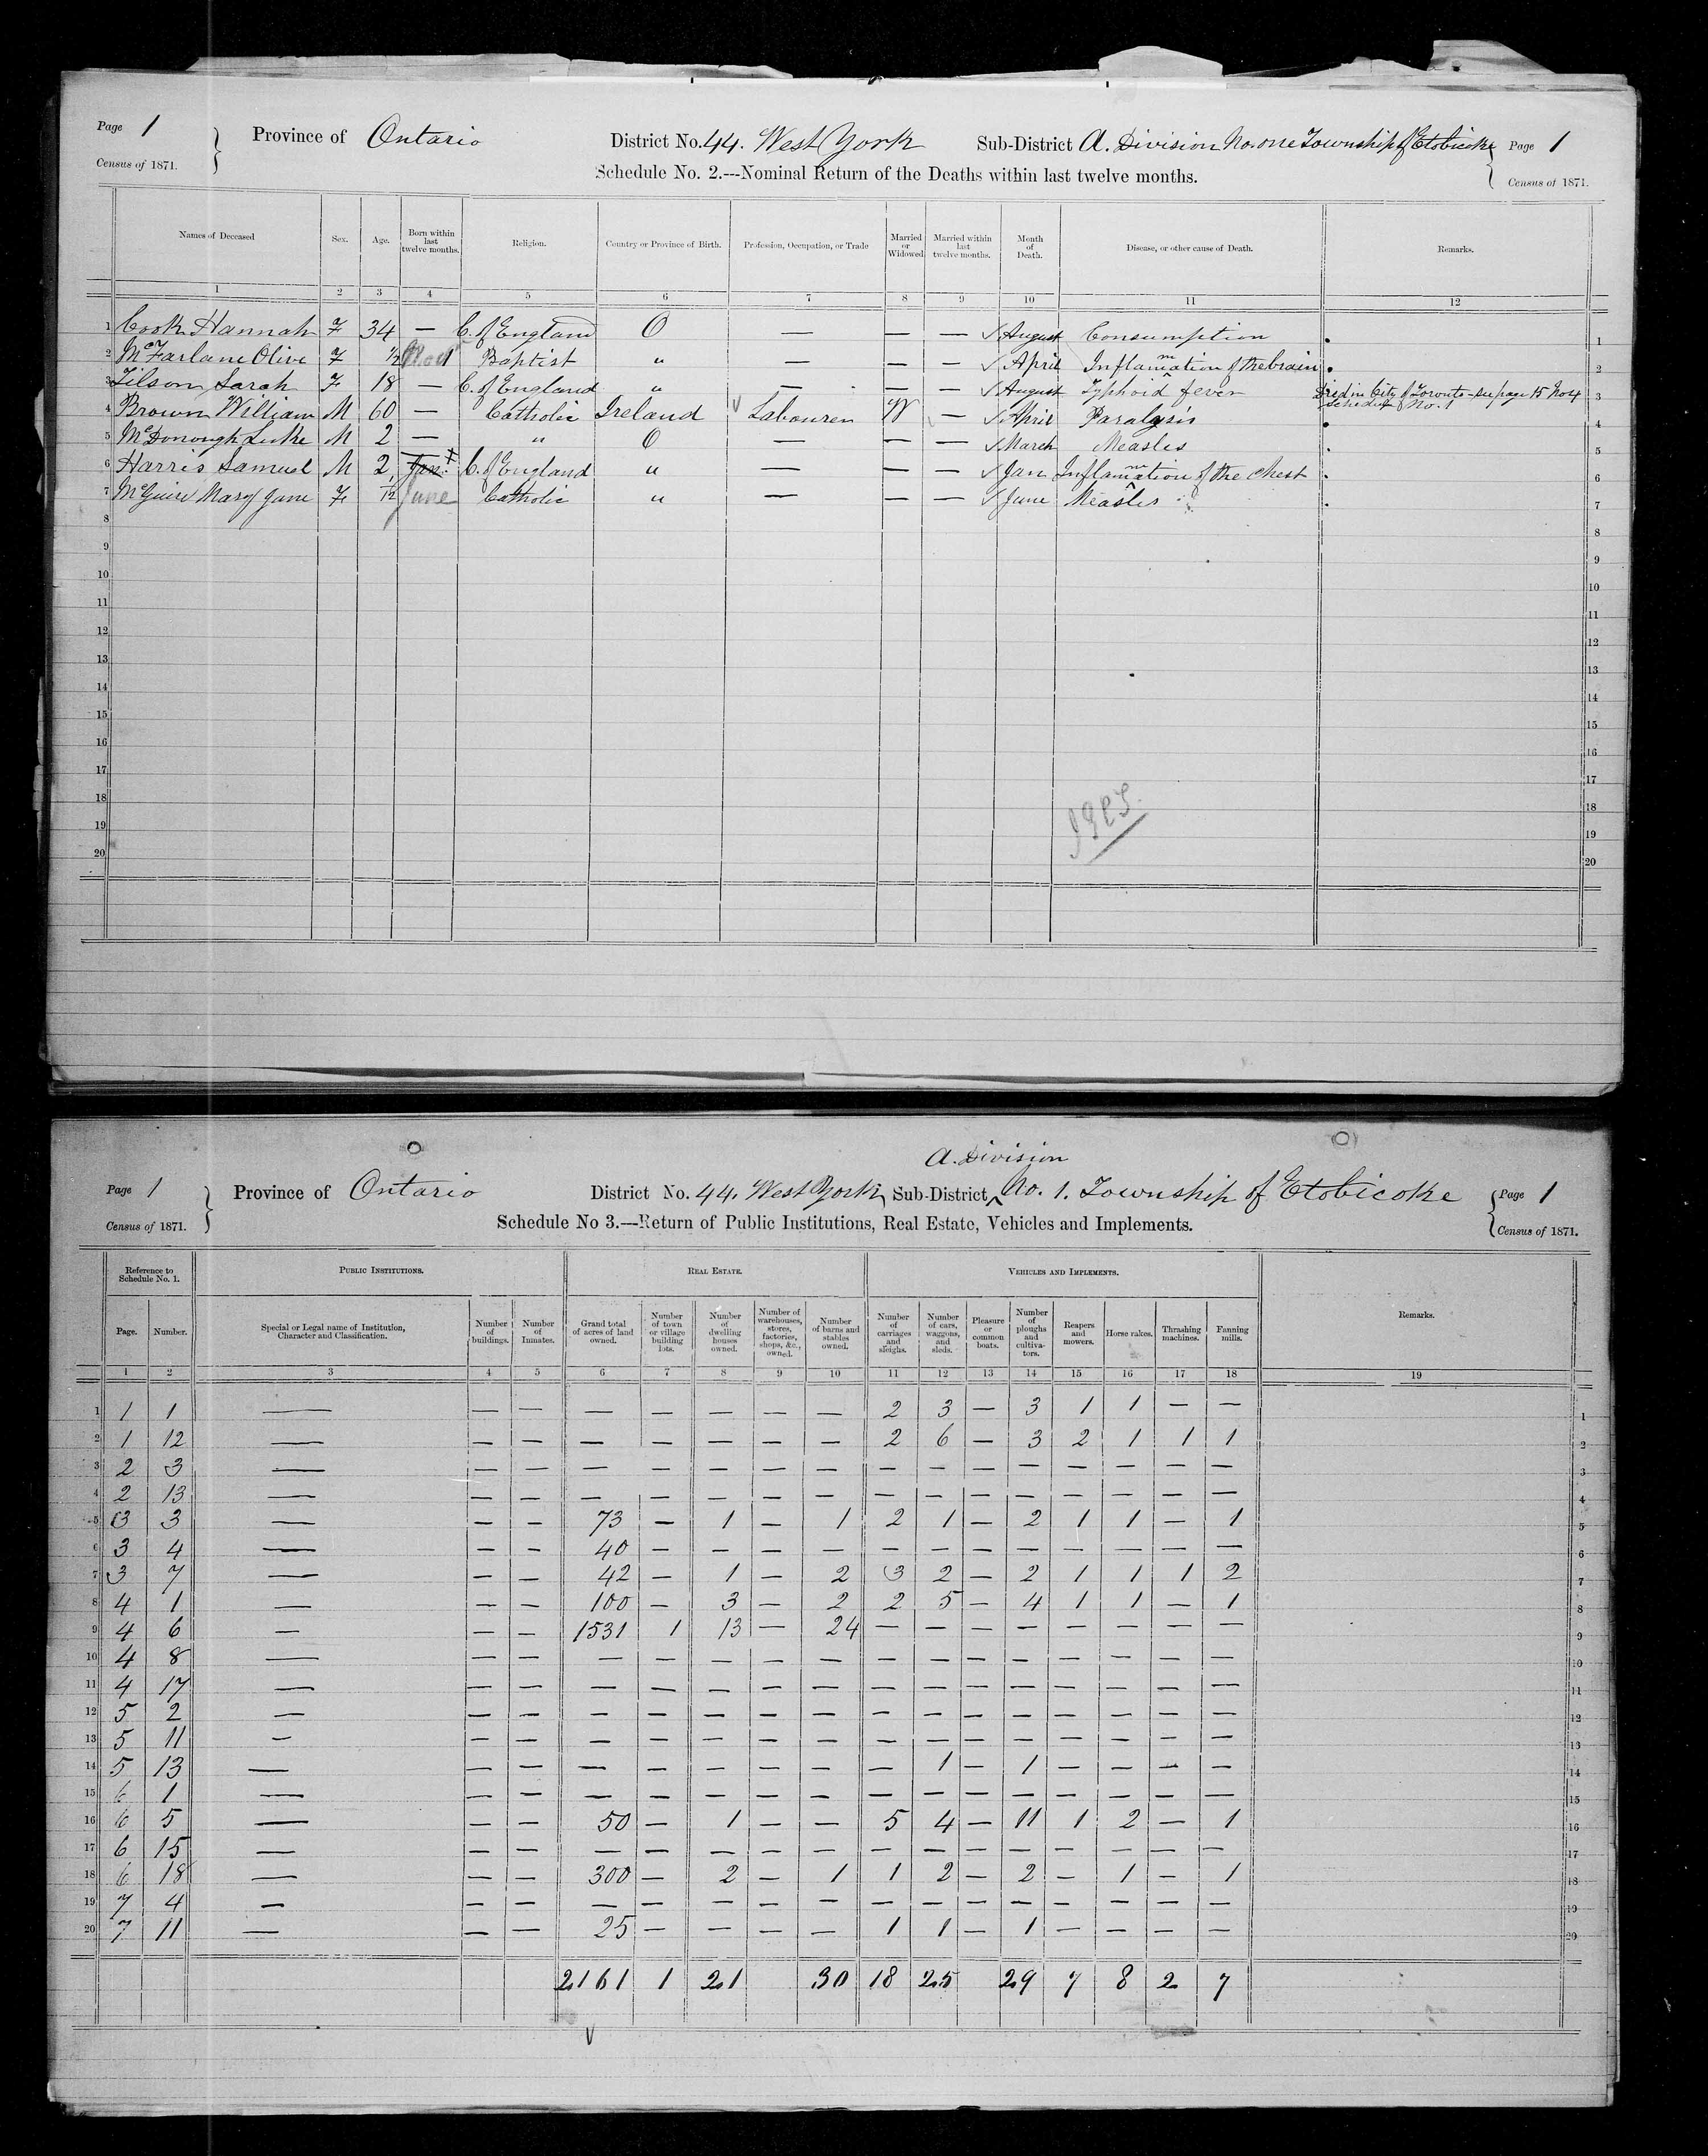 Page 1 Province of Ontario District No. 44. West York Sub-District A. Division No. one Township of Etobicoke Page 1
Census of 1871. Schedule No. 2.---Nominal Return of the Deaths within last twelve months. Census of 1871.
Names of Deceased Sex. Age. Born within last twelve months. Religion. Country or Province of Birth. Profession, Occupation, or Trade Married or Widowed Married within last twelve months. Month of Death. Disease, or other cause of Death. Remarks.
1 2 3 4 5 6 7 8 9 10 11 12
1 Cook Hannah F 34 — C. of England O — — — ✓ August Consumption . 1
2 McFarlane Olive F Baptist " — — — ✓ April Inflammation of the brain . 2
3 Tilson Sarah F 18 — C. of England " — — — ✓ August Typhoid fever Died in City of Toronto - see page 15 No 4 3
Schedule No. 1
4 Brown William M 60 — Catholic Ireland ✓ Labourer W — ✓ April Paralysis . 4
5 McDonough Luke M 2 — " O — — — ✓ March Measles . 5
6 Harris Samuel M 2 Jan. C. of England " — — — ✓ Jan Inflammation of the Chest . 6
7 McGuire Mary Jane F 1/12 June Catholic " — — — ✓ June Measles . 7
8 8
9 9
10 10
11 11
12 12
13 13
14 14
15 15
16 16
17 17
18 18
19 19
20 20
A. Division
Page 1 Province of Ontario District No. 44. West York, Sub-District No. 1. Township of Etobicoke Page 1
Census of 1871. Schedule No 3.—Return of Public Institutions, Real Estate, Vehicles and Implements. Census of 1871.
Reference to Schedule No. 1. Public Institutions. Real Estate. Vehicles and Implements. Remarks.
Page. Number. Special or Legal name of Institution, Character and Classification. Number of buildings. Number of Inmates. Grand total of acres of land owned. Number of town or village building lots. Number of dwelling houses owned. Number of warehouses, stores, factories, shops, &c., owned. Number of barns and stables owned. Number of carriages and sleighs. Number of cars, waggons, and sleds. Pleasure or common boats. Number of ploughs and cultivators. Reapers and mowers. Horse rakes. Thrashing machines. Fanning mills.
1 2 3 4 5 6 7 8 9 10 11 12 13 14 15 16 17 18 19
1 1 1 — — — — — — — — 2 3 — 3 1 1 — — 1
2 1 12 — — — — — — — — 2 6 — 3 2 1 1 1 2
3 2 3 — — — — — — — — — — — — — — — — 3
4 2 13 — — — — — — — — — — — — — — — — 4
5 3 3 — — — 73 — 1 — 1 2 1 — 2 1 1 — 1 5
6 3 4 — — — 40 — — — — — — — — — — — — 6
7 3 7 — — — 42 — 1 — 2 3 2 — 2 1 1 1 2 7
8 4 1 — — — 100 — 3 — 2 2 5 — 4 1 1 — 1 8
9 4 6 — — — 1531 1 13 — 24 — — — — — — — — 9
10 4 8 — — — — — — — — — — — — — — — — 10
11 4 17 — — — — — — — — — — — — — — — — 11
12 5 2 — — — — — — — — — — — — — — — — 12
13 5 11 — — — — — — — — — — — — — — — — 13
14 5 13 — — — — — — — — — 1 — 1 — — — — 14
15 6 1 — — — — — — — — — — — — — — — — 15
16 6 5 — — — 50 — 1 — — 5 4 — 11 1 2 — 1 16
17 6 15 — — — — — — — — — — — — — — — — 17
18 6 18 — — — 300 — 2 — 1 1 2 — 2 — 1 — 1 18
19 7 4 — — — — — — — — — — — — — — — — 19
20 7 11 — — — 25 — — — — 1 1 — 1 — — — — 20
2161 1 21 30 18 25 29 7 8 2 7